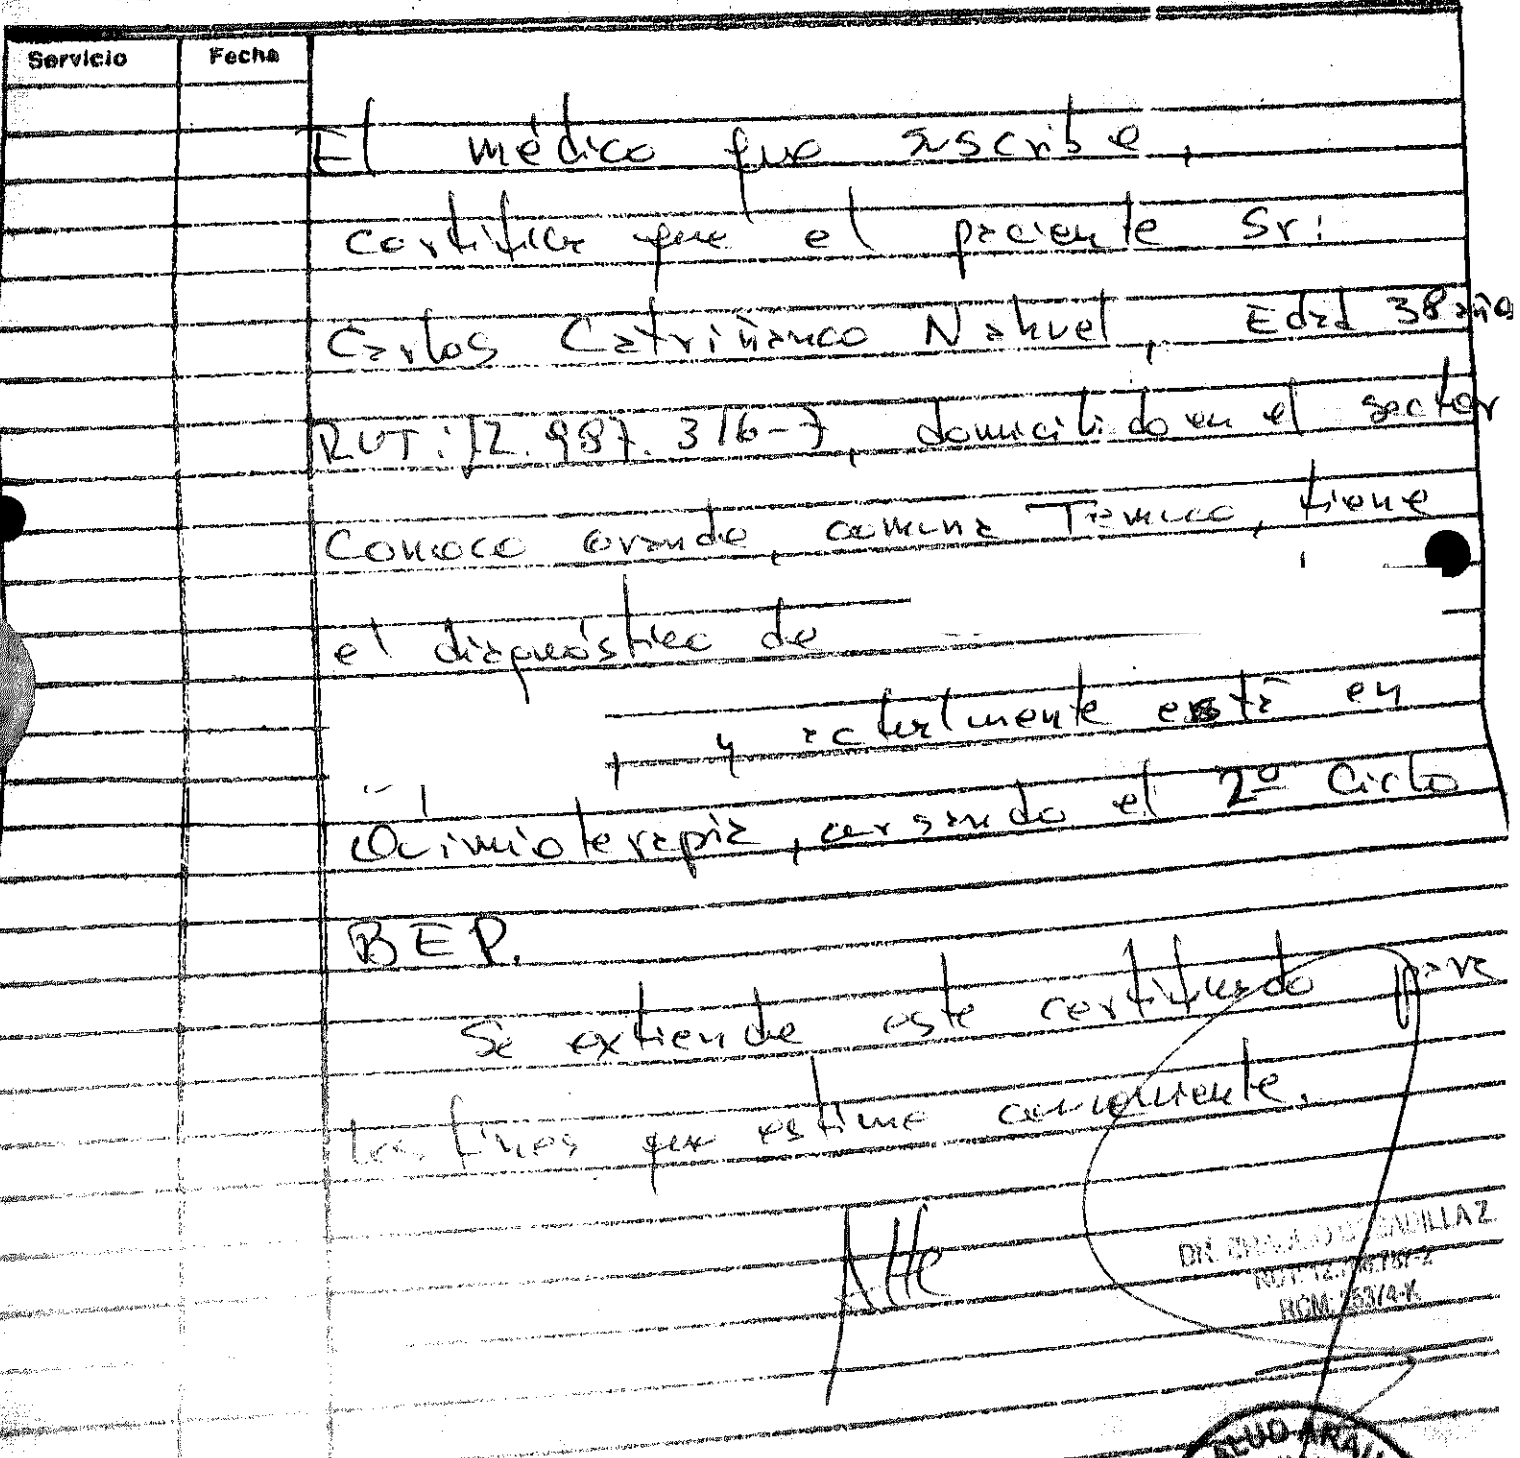 Servicio Fecha
El médico que suscribe,
certifica que el paciente Sr:
Carlos Catriñanco Nahuel, Edad 38 años
RUT: 12.987.316-7, domiciliado en el sector
Conoco Grande, comuna Temuco, tiene
el diagnóstico de
, y actualmente está en
Quimioterapia, cursando el 2º Ciclo
BEP.
Se extiende este certificado para
los fines que estime conveniente.
Atte
DR.
RUT: 12.
RCM: